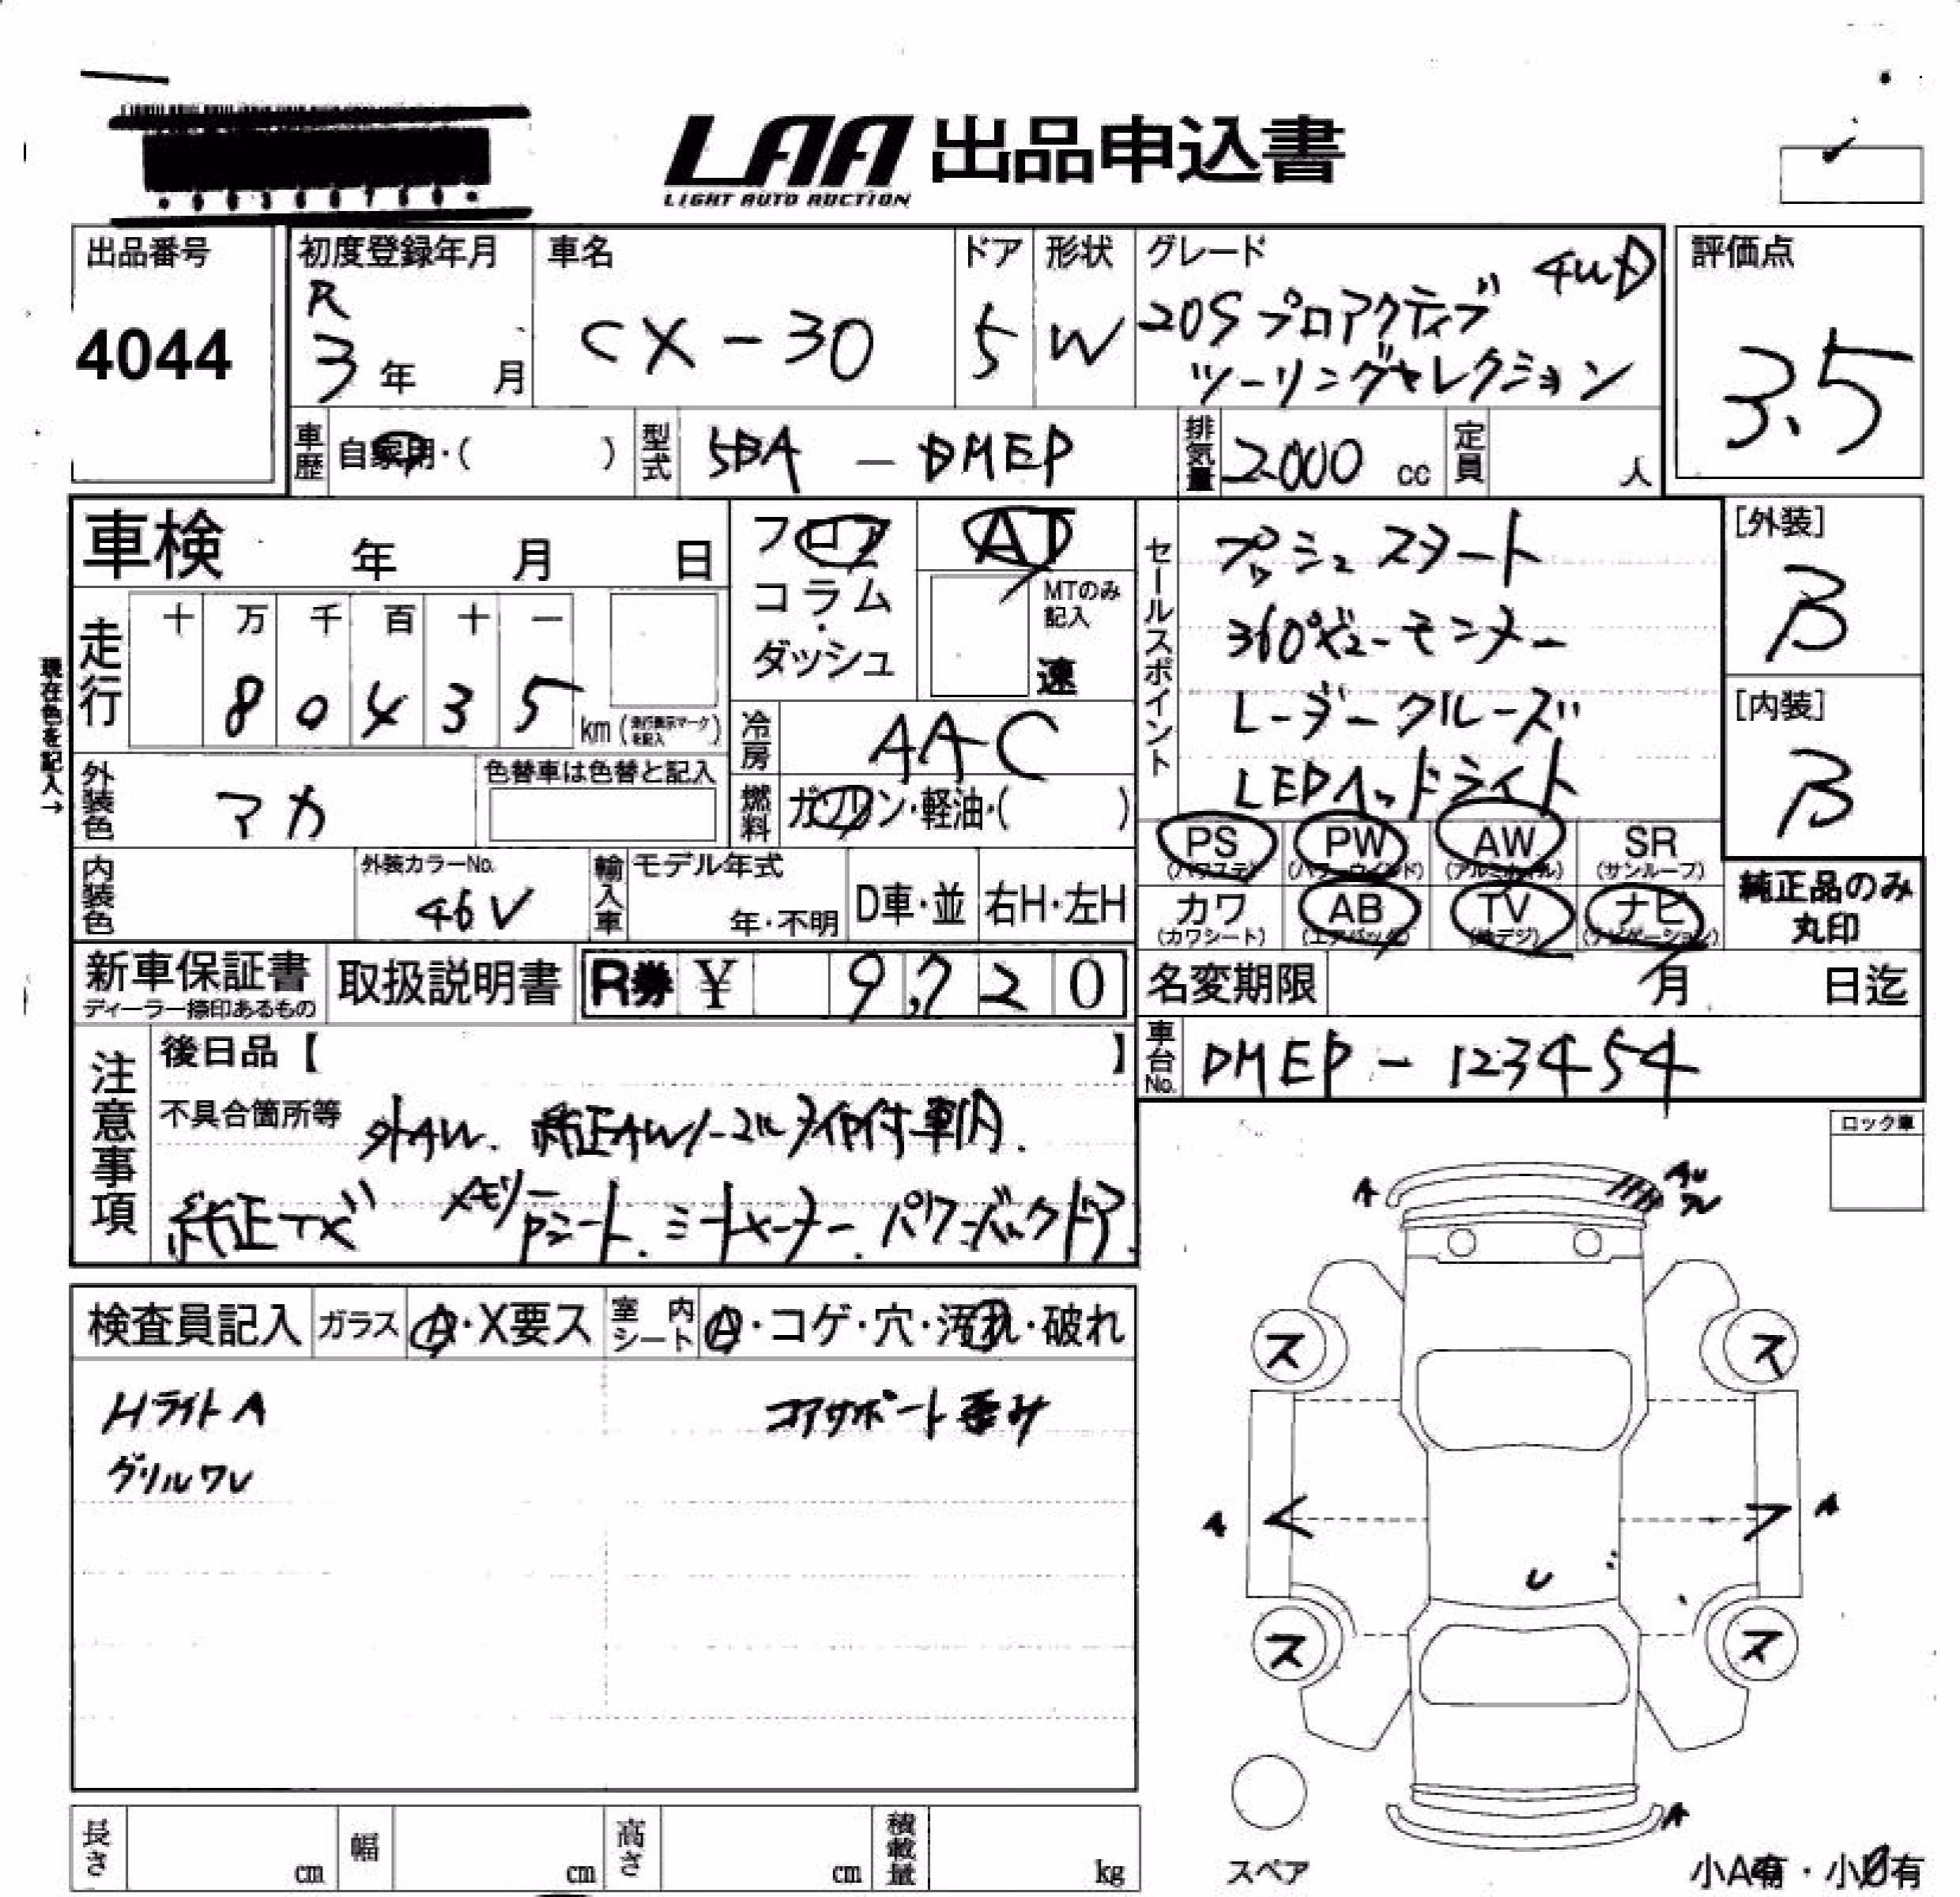 LAA 出品申込書
LIGHT AUTO AUCTION
出品番号
4044
初度登録年月
R
3年 月
車名
CX-30
ドア
5
形状
W
グレード
4WD
20S プロアクティブ
ツーリングセレクション
評価点
3.5
車歴
自家用・( )
型式
5BA - DMEP
排気量
2000 cc
定員
人
車検 年 月 日
フロア
コラム
・
ダッシュ
AT
MTのみ
記入
速
セールスポイント
プッシュスタート
360°ビューモニター
レーダークルーズ
LEDヘッドライト
[外装]
B
[内装]
B
現在色を記入→
走行
十 万 千 百 十 一
8 0 4 3 5
km (走行表示マークを記入)
冷房
AAC
外装色
マカ
色替車は色替と記入
燃料
ガソリン・軽油・( )
PS
(パワステ)
PW
(パワーウインド)
AW
(アルミホイル)
SR
(サンルーフ)
カワ
(カワシート)
AB
(エアバッグ)
TV
(地デジ)
ナビ
(ナビゲーション)
純正品のみ
丸印
内装色
外装カラーNo.
46V
輸入車
モデル年式
年・不明
D車・並
右H・左H
新車保証書
ディーラー捺印あるもの
取扱説明書
R券 ¥ 9,720
名変期限 月 日迄
車台No.
DMEP - 123454
注意事項
後日品【 】
不具合箇所等
外AW. 純正AWノーマルタイヤ付車内.
純正TV メモリーPシート. ミートメーター. パワーバックドア.
ロック車
A
A
検査員記入
ガラス
A・X要ス
室内シート
A・コゲ・穴・汚れ・破れ
HライトA
グリルワレ
コアサポート歪み
ス
ス
A
A
U
ス
ス
A
スペア
長さ
cm
幅
cm
高さ
cm
積載量
kg
小A有・小U有